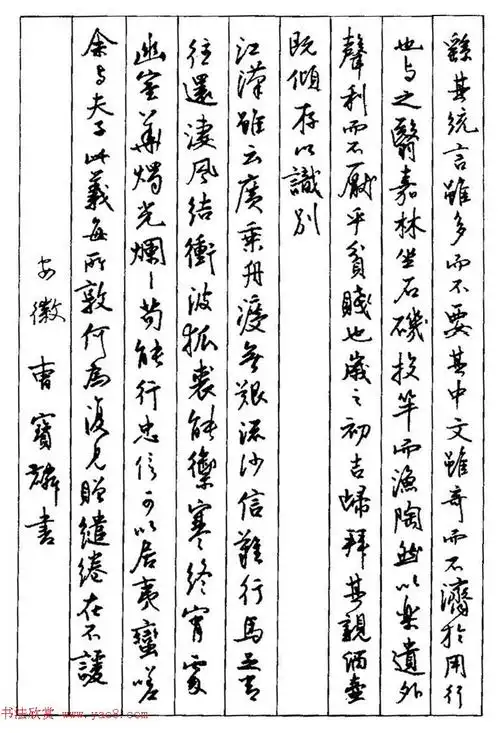 繇其統言雖多而不要其中文雖奇而不濟於用行
也与之翳嘉林坐石磯投竿而漁陶然以樂遺外
聲利而不厭乎貧賤也歲之初吉歸拜其親酒壺
既傾存以識別
江漢雖云廣乘舟渡無艱流沙信難行馬足常
往還淒風結衝波狐裘能禦寒終宵處
幽室華燭光爛〻苟能行忠信可以居夷蠻嗟
余与夫子此義每所敦何為復見贈繾綣在不諼
安徽 曹寶麟書
书法欣赏 www.yac8.com